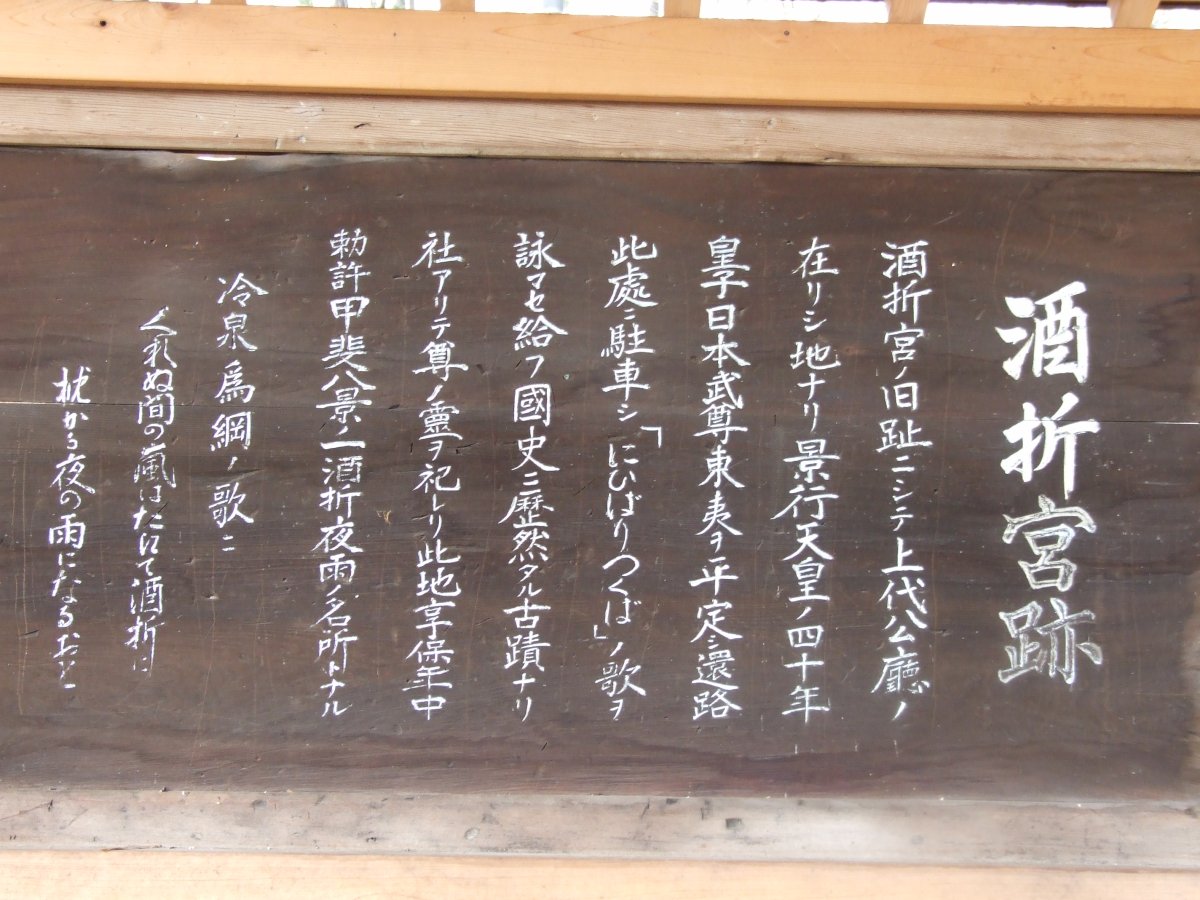 酒折宮跡
酒折宮ノ旧趾ニシテ上代公廳ノ
在リシ地ナリ景行天皇ノ四十年
皇子日本武尊東夷ヲ平定シ還路
此處ニ駐車シ「にひばりつくば」ノ歌ヲ
詠マセ給フ國史ニ歴然タル古蹟ナリ
社アリテ尊ノ靈ヲ祀レリ此地享保年中
勅許甲斐八景一酒折夜雨ノ名所トナル
冷泉為綱ノ歌ニ
くれぬ間の嵐はたにて酒折に
枕かる夜の雨になるおと